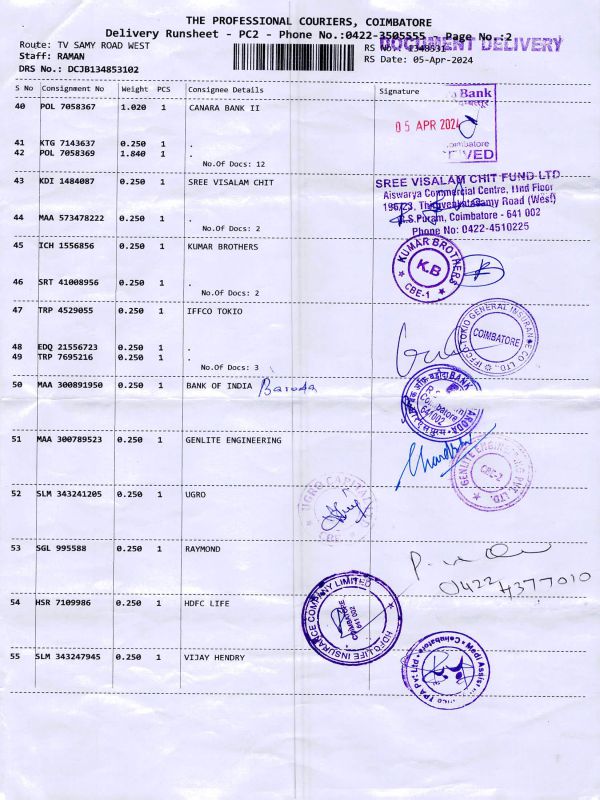 THE PROFESSIONAL COURIERS, COIMBATORE
Delivery Runsheet - PC2 - Phone No.:0422-3505555 - Page No.:2
DOCUMENT DELIVERY
Route: TV SAMY ROAD WEST
RS No.: 1348531
Staff: RAMAN
RS Date: 05-Apr-2024
DRS No.: DCJB134853102
S No Consignment No Weight PCS Consignee Details Signature
40 POL 7058367 1.020 1 CANARA BANK II
Bank
05 APR 2024
41 KTG 7143637 0.250 1 .
42 POL 7058369 1.840 1 .
No.Of Docs: 12
43 KDI 1484087 0.250 1 SREE VISALAM CHIT
SREE VISALAM CHIT FUND LTD
Aiswarya Commercial Centre, IInd Floor
196/23, Thiruvenkatasamy Road (West)
R.S.Puram, Coimbatore - 641 002
Phone No: 0422-4510225
44 MAA 573478222 0.250 1 .
No.Of Docs: 2
45 ICH 1556856 0.250 1 KUMAR BROTHERS
KUMAR BROTHERS
K.B
CBE-1
46 SRT 41008956 0.250 1 .
No.Of Docs: 2
47 TRP 4529055 0.250 1 IFFCO TOKIO
IFFCO TOKIO GENERAL INSURANCE CO LTD.
COIMBATORE
48 EDQ 21556723 0.250 1 .
49 TRP 7695216 0.250 1 .
No.Of Docs: 3
50 MAA 300891950 0.250 1 BANK OF INDIA Baroda
641002
51 MAA 300789523 0.250 1 GENLITE ENGINEERING
GENLITE ENGINEERING PVT. LTD.
CBE-2
52 SLM 343241205 0.250 1 UGRO
UGRO CAPITAL
CBE
53 SGL 995588 0.250 1 RAYMOND
0422
4377010
54 HSR 7109986 0.250 1 HDFC LIFE
HDFC LIFE INSURANCE COMPANY LIMITED
COIMBATORE
641 002
55 SLM 343247945 0.250 1 VIJAY HENDRY
Medi Assist
TPA Pvt Ltd
Coimbatore